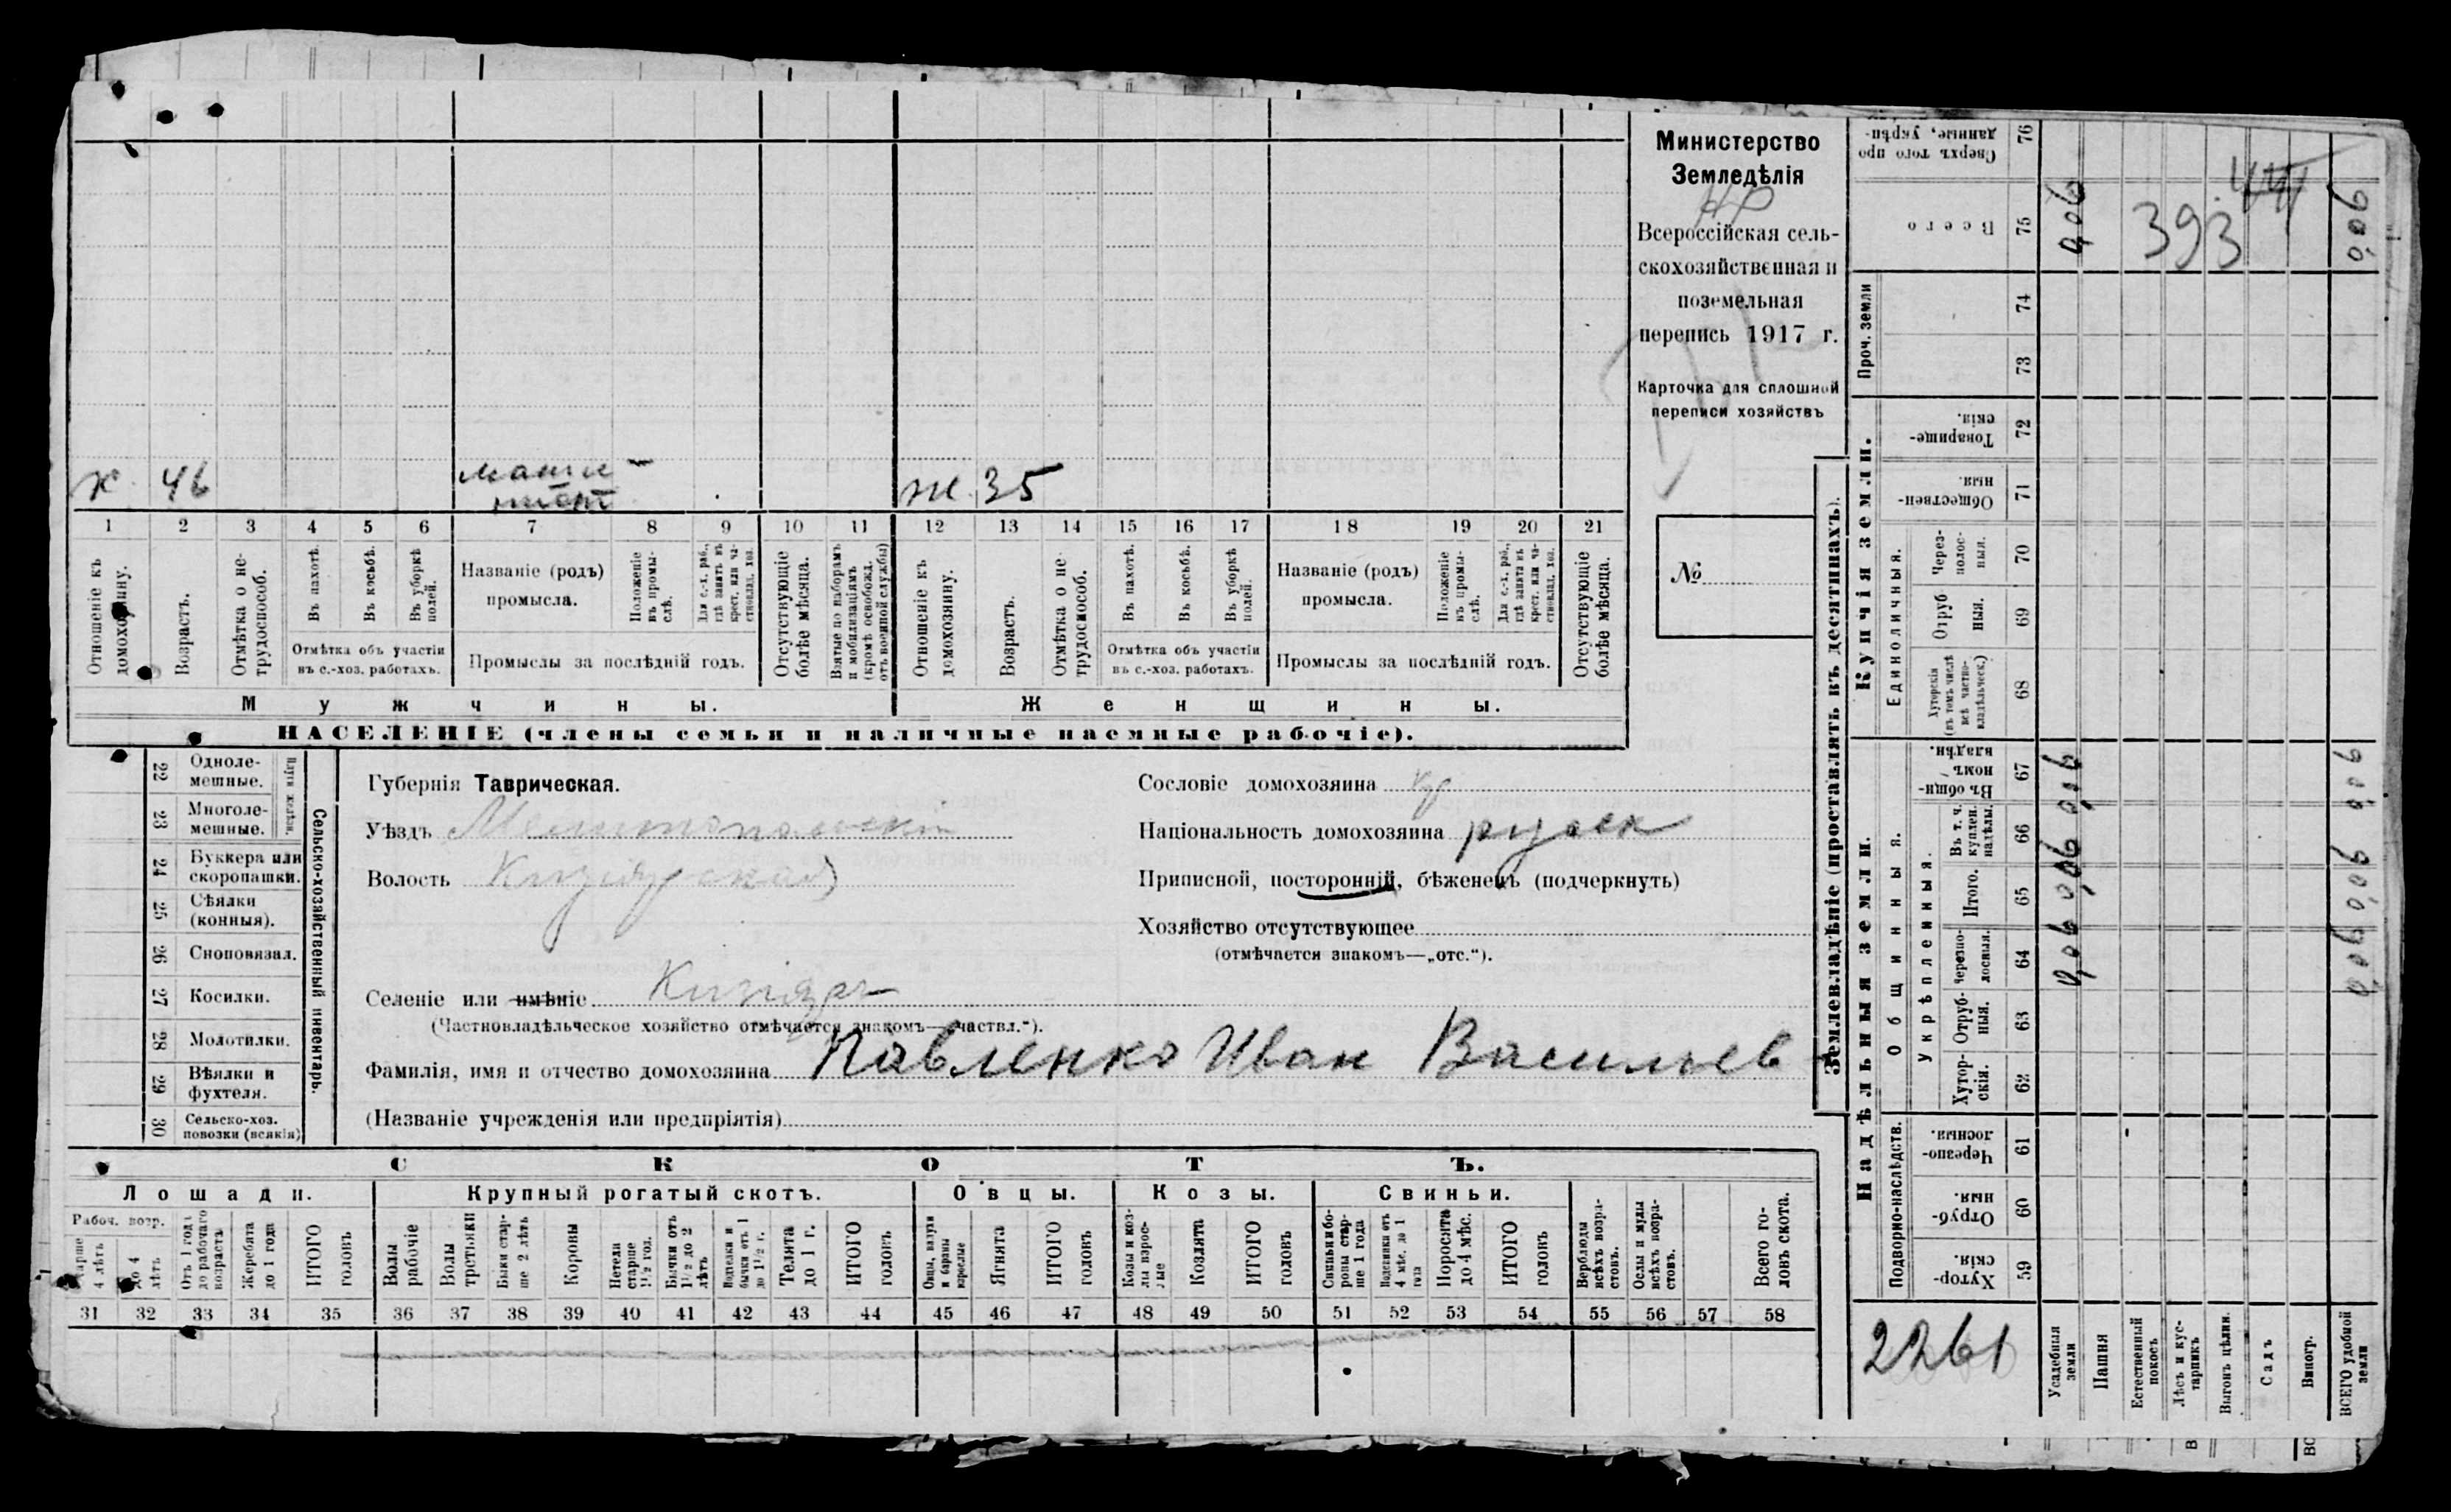 Министерство
Земледѣлія
Всероссійская сель-
скохозяйственная и
поземельная
перепись 1917 г.
Карточка для сплошной
переписи хозяйствъ
№
46
маши-
нист
ж. 35
1 2 3 4 5 6 7 8 9 10 11 12 13 14 15 16 17 18 19 20 21
Отношеніе къ домохозяину.
Возрастъ.
Отмѣтка о не-трудоспособ.
Въ пахотѣ.
Въ косьбѣ.
Въ уборкѣ полей.
Отмѣтка объ участіи
въ с.-хоз. работахъ.
Названіе (родъ)
промысла.
Положеніе въ промы-слѣ.
Для с.-х. раб., гдѣ занятъ въ крест. или ча-стновлад. хоз.
Промыслы за послѣдній годъ.
Отсутствующіе болѣе мѣсяца.
Взятые по наборамъ и мобилизаціямъ (кромѣ освобожд. отъ военной службы)
Отношеніе къ домохозяину.
Возрастъ.
Отмѣтка о не-трудоспособ.
Въ пахотѣ.
Въ косьбѣ.
Въ уборкѣ полей.
Отмѣтка объ участіи
въ с.-хоз. работахъ.
Названіе (родъ)
промысла.
Положеніе въ промы-слѣ.
Для с.-х. раб., гдѣ занята въ крест. или ча-стновлад. хоз.
Промыслы за послѣдній годъ.
Отсутствующіе болѣе мѣсяца.
Мужчины.
Женщины.
НАСЕЛЕНІЕ (члены семьи и наличные наемные рабочіе).
22 Одноле-мешные.
23 Многоле-мешные.
Плуги желѣзн.
24 Буккера или скоропашки.
25 Сѣялки (конныя).
26 Сноповязал.
27 Косилки.
28 Молотилки.
29 Вѣялки и фухтеля.
30 Сельско-хоз. повозки (всякія)
Сельско-хозяйственный инвентарь.
Губернія Таврическая.
Уѣздъ Мелитопольскій
Волость Кизіярская
Селеніе или имѣніе Кизіяръ
(Частновладѣльческое хозяйство отмѣчается знакомъ—„частвл.“).
Фамилія, имя и отчество домохозяина Павленко Иван Васильев
(Названіе учрежденія или предпріятія)
Сословіе домохозяина
Національность домохозяина русск
Приписной, посторонній, бѣженецъ (подчеркнуть)
Хозяйство отсутствующее
(отмѣчается знакомъ—„отс.“).
СКОТЪ.
Лошади.
Рабоч. возр.
Старше 4 лѣтъ
До 4 лѣтъ
Отъ 1 года до рабочаго возраста
Жеребята до 1 года
ИТОГО головъ
Крупный рогатый скотъ.
Волы рабочіе
Волы третьяки
Быки стар-ше 2 лѣтъ
Коровы
Нетели старше 1½ год.
Бычки отъ 1½ до 2 лѣтъ
Нетелки и бычки отъ 1 до 1½ г.
Телята до 1 г.
ИТОГО головъ
Овцы.
Овцы, валухи и бараны взрослые
Ягнята
ИТОГО головъ
Козы.
Козы и коз-лы взрос-лые
Козлята
ИТОГО головъ
Свиньи.
Свиньи и бо-ровы стар-ше 1 года
Подсвинки отъ 4 мѣс. до 1 года
Поросята до 4 мѣс.
ИТОГО головъ
Верблюды всѣхъ возра-стовъ.
Ослы и мулы всѣхъ возра-стовъ.
Всего го-ловъ скота.
31 32 33 34 35 36 37 38 39 40 41 42 43 44 45 46 47 48 49 50 51 52 53 54 55 56 57 58
Землевладѣніе (проставлять въ десятинахъ).
Сверхъ того про данные, укрѣп- 76
Всего 75
Проч. земли 74 73
Купчія земли.
Товарище-скія. 72
Обществен-ныя. 71
Единоличныя.
Через-полос-ныя. 70
Отруб-ныя. 69
Хуторскія (въ томъ числѣ всѣ частно-владѣльческ.) 68
Надѣльныя земли.
Общинныя.
Въ общин-номъ владѣн. 67
Укрѣпленныя.
Въ т. ч. куплен. надѣлы. 66
Итого. 65
Черезпо-лосныя. 64
Отруб-ныя. 63
Хутор-скія. 62
Подворно-наслѣдств.
Черезпо-лосныя. 61
Отруб-ныя. 60
Хутор-скія. 59
Усадебная земли
Пашня
Естественный покосъ
Лѣсъ и кус-тарникъ
Выгонъ цѣлин.
Садъ
Виногр.
ВСЕГО удобной земли
393
2261